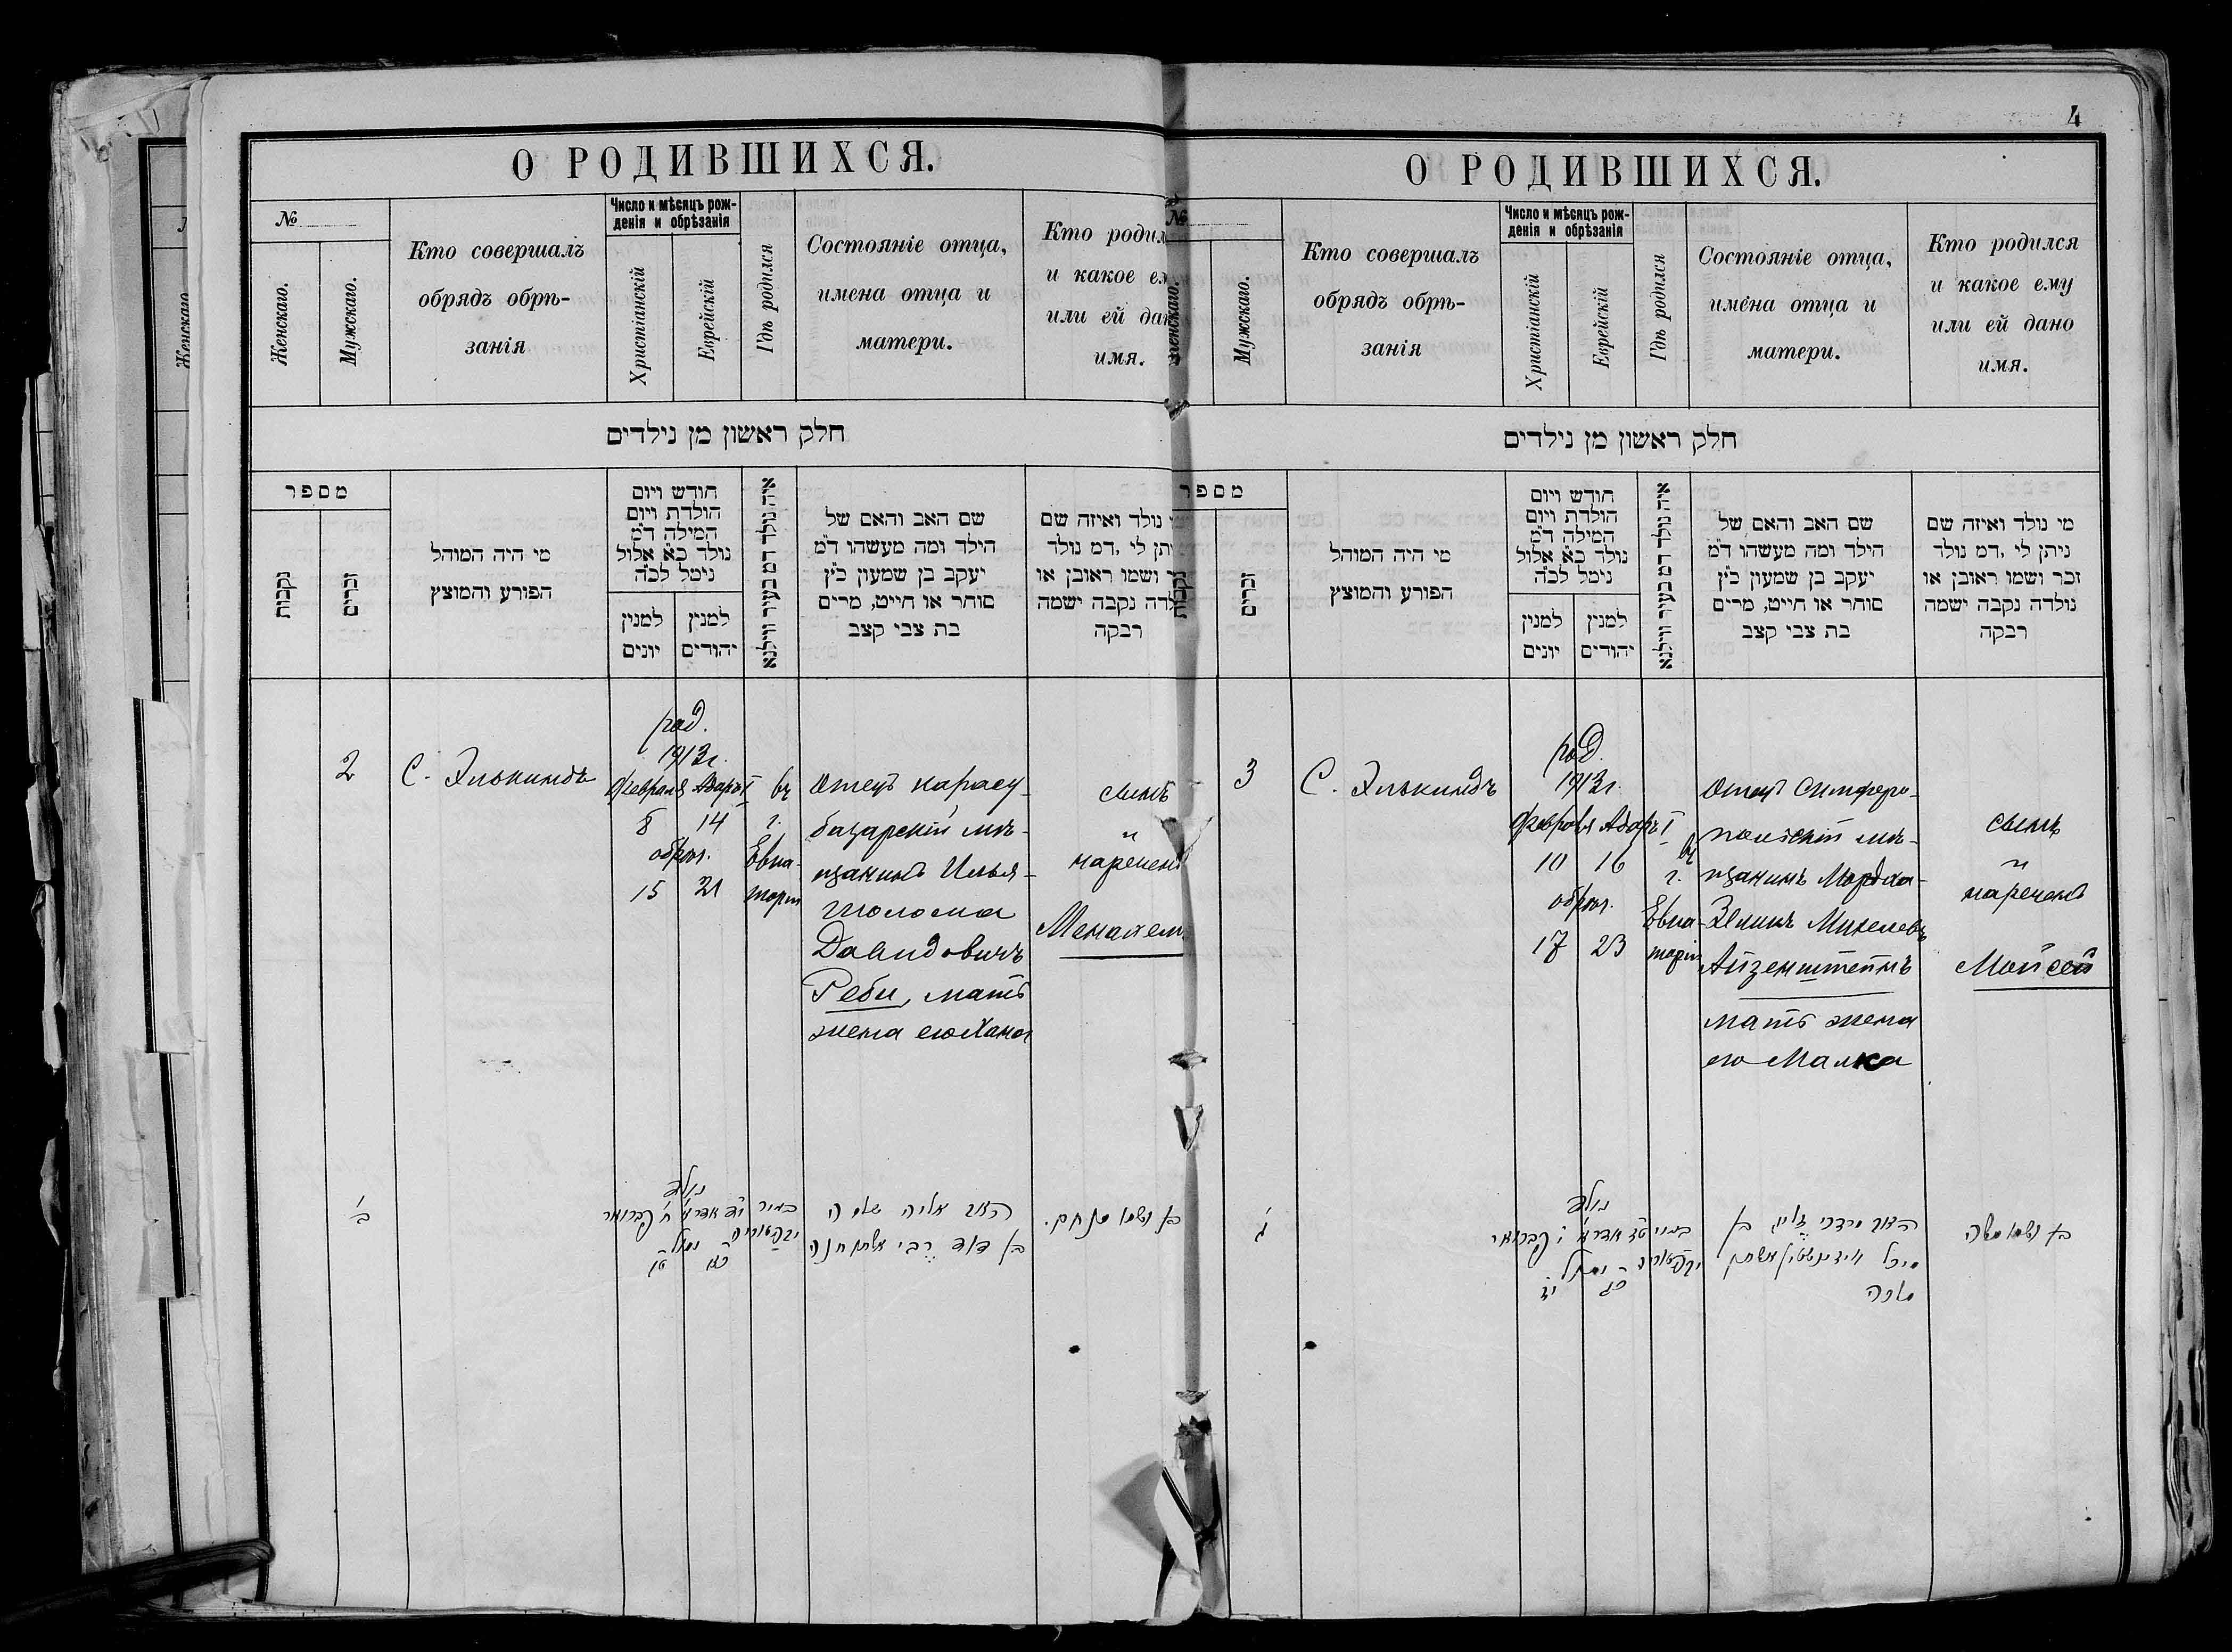 4
О РОДИВШИХСЯ.
№
Женскаго.
Мужскаго.
Кто совершалъ
обрядъ обрѣ-
занія
Число и мѣсяцъ рож-
денія и обрѣзанія
Христіанскій
Еврейскій
Гдѣ родился
Состояніе отца,
имена отца и
матери.
Кто родил
и какое ем
или ей дан
имя.
חלק ראשון מן נילדים
מספר
נקבות
זכרים
מי היה המוהל
הפורע והמוצץ
חודש ויום
הולדת ויום
המילה ד״מ
נולד כ״א אלול
נימל לכ״ה
למנין
יונים
למנין
יהודים
איה נולד דמ בעיר ווילנא
שם האב והאם של
הילד ומה מעשהו ד״מ
יעקב בן שמעון כ״ץ
סוחר או חייט, מרים
בת צבי קצב
נולד ואיזה שם
יתן לי ,דמ נולד
ר ושמו ראובן או
לדה נקבה ישמה
רבקה
2
С. Элькиндъ
род.
1913 г.
Февраля Адаръ I
8 14
обрѣз.
15 21
въ
г.
Евпа-
торіи
Отецъ карасу-
базарскій мѣ-
щанинъ Илья-
Шолома
Давидовичъ
Реби, мать
жена его Хана
сынъ
и
нареченъ
Менахем
ב׳
נולד
בן ושמו מנחם.
בן דוד רבי אשתו חנה
О РОДИВШИХСЯ.
№
Женскаго.
Мужскаго.
Кто совершалъ
обрядъ обрѣ-
занія
Число и мѣсяцъ рож-
денія и обрѣзанія
Христіанскій
Еврейскій
Гдѣ родился
Состояніе отца,
имена отца и
матери.
Кто родился
и какое ему
или ей дано
имя.
חלק ראשון מן נילדים
מספר
נקבות
זכרים
מי היה המוהל
הפורע והמוצץ
חודש ויום
הולדת ויום
המילה ד״מ
נולד כ״א אלול
נימל לכ״ה
למנין
יונים
למנין
יהודים
איה נולד דמ בעיר ווילנא
שם האב והאם של
הילד ומה מעשהו ד״מ
יעקב בן שמעון כ״ץ
סוחר או חייט, מרים
בת צבי קצב
מי נולד ואיזה שם
ניתן לי ,דמ נולד
זכר ושמו ראובן או
נולדה נקבה ישמה
רבקה
3
С. Элькиндъ
род.
1913 г.
Февраля Адаръ I
10 16
обрѣз.
17 23
въ
г.
Евпа-
торіи
Отецъ Симферо-
польскій мѣ-
щанинъ Мордха-
Зелик Михелевъ
Айзенштейнъ
мать жена
его Малка
сынъ
и
нареченъ
Мойсей
ג׳
נולד
בן ושמו משה
מלכה